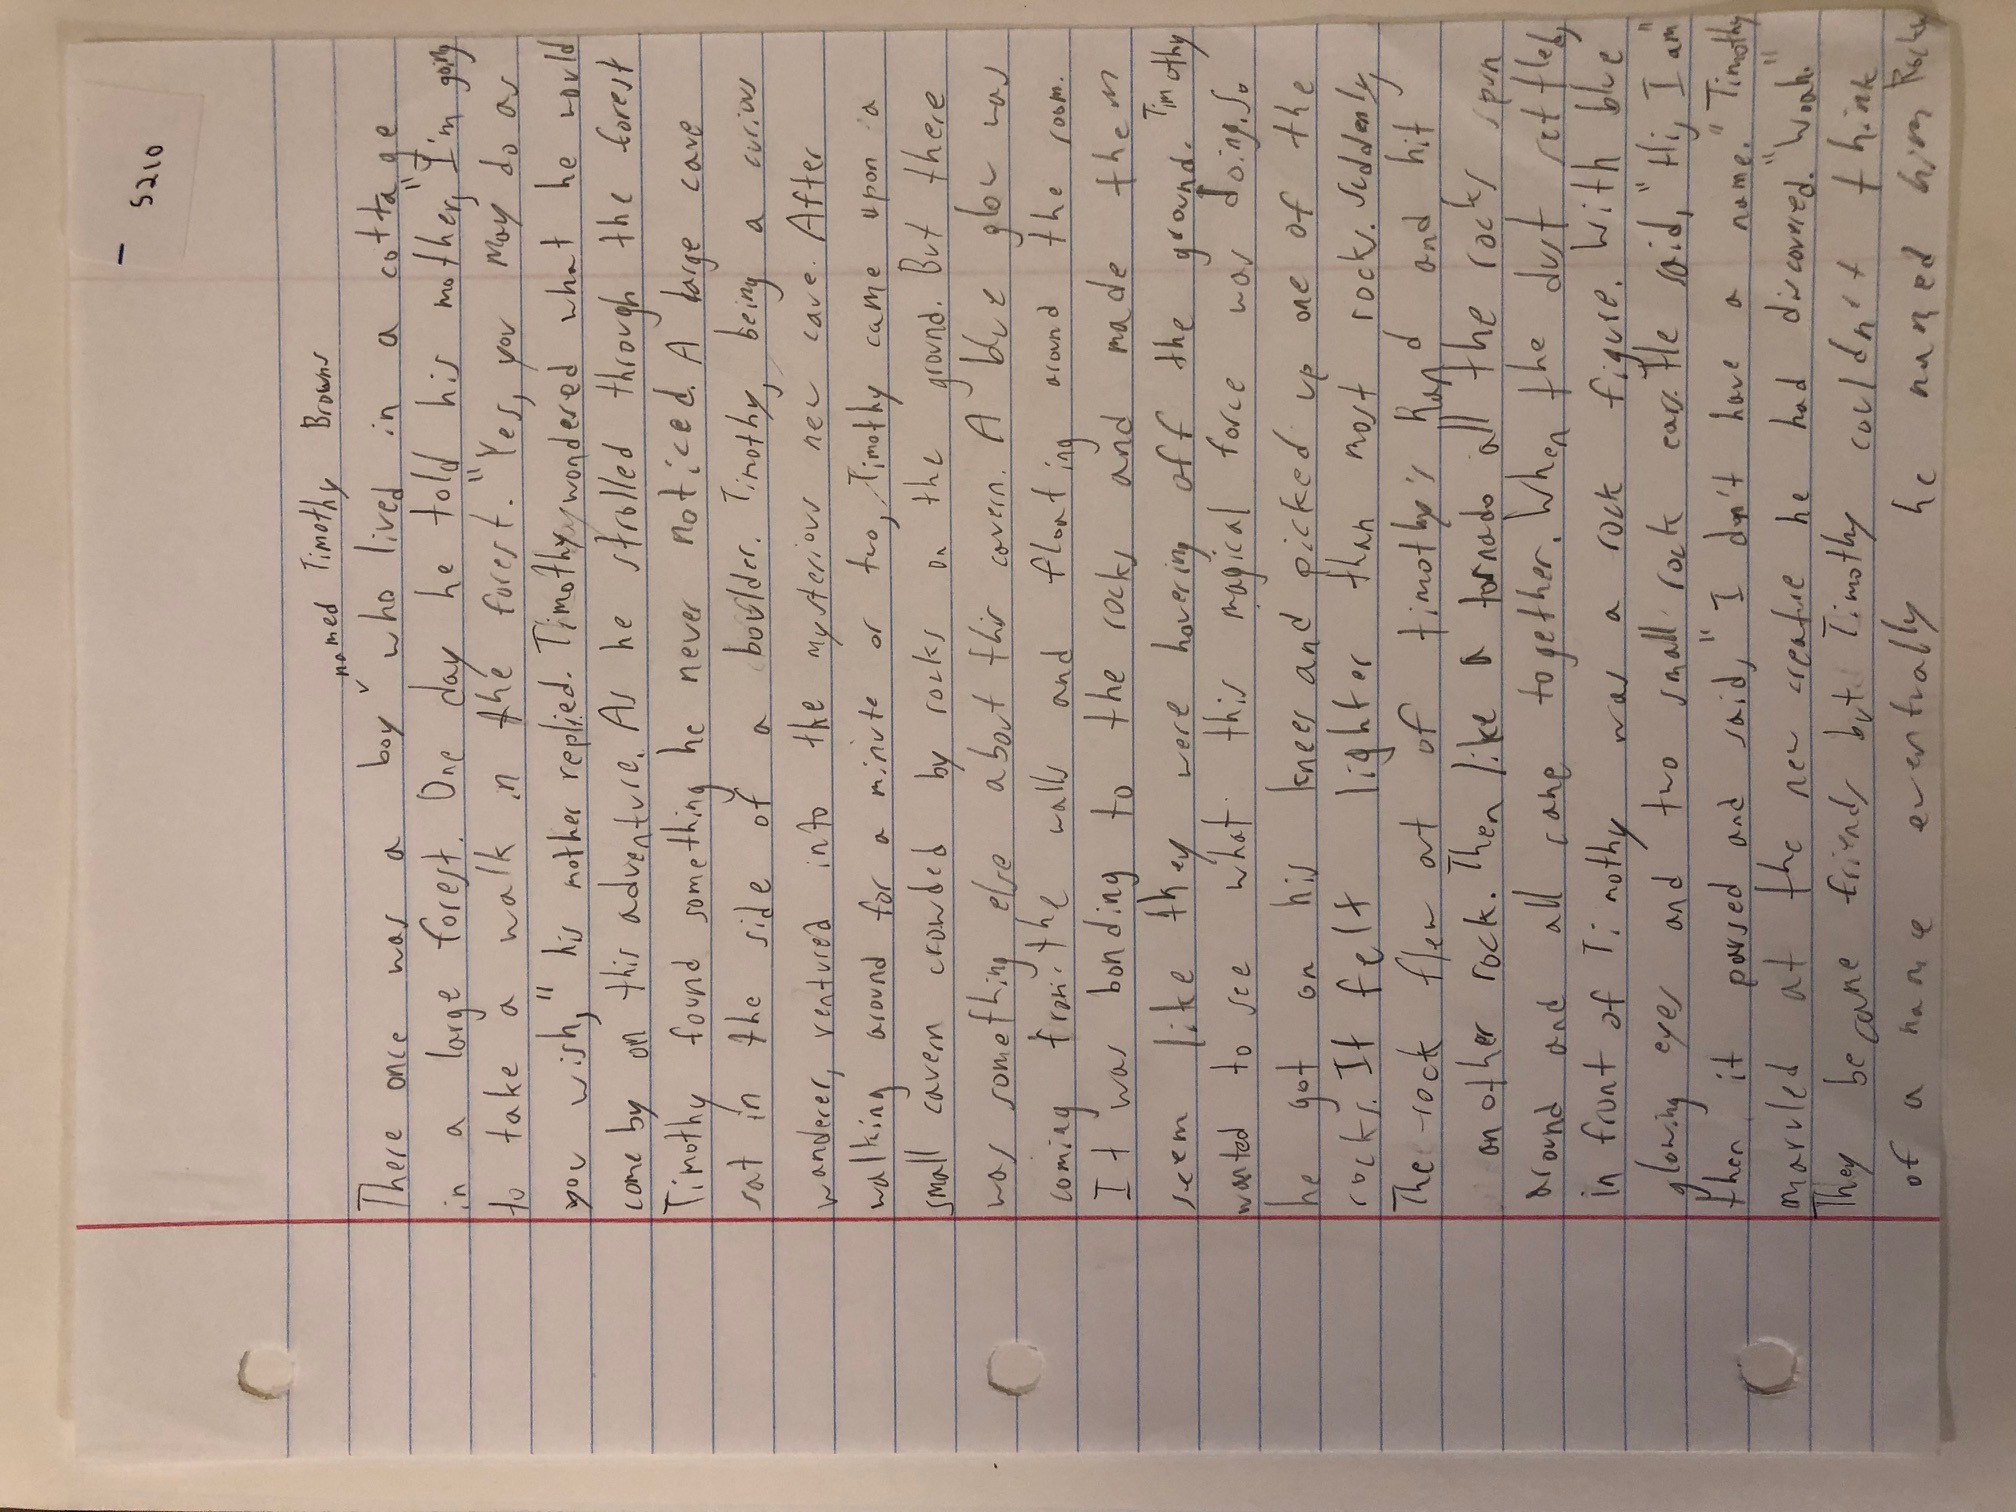 5210
named Timothy Browns
There once was a boy who lived in a cottage
in a large forest. One day he told his mother, "I'm going
to take a walk in the forest. "Yes, you may do as
you wish," his mother replied. Timothy wondered what he would
come by on this adventure. As he strolled through the forest
Timothy found something he never noticed. A large cave
sat in the side of a boulder. Timothy, being a curious
wanderer, ventured into the mysterious new cave. After
walking around for a minute or two, Timothy came upon a
small cavern crowded by rocks on the ground. But there
was something else about this cavern. A blue glow was
coming from the walls and floating around the room.
It was bonding to the rocks and made them
seem like they were hovering off the ground. Timothy
wanted to see what this magical force was doing. So
he got on his knees and picked up one of the
rocks. It felt lighter than most rocks. Suddenly,
The rock flew out of timothy's hand and hit
another rock. Then like a tornado all the rocks spun
around and all came together. When the dust settled,
in front of Timothy was a rock figure. With blue
glowing eyes and two small rock ears. He said, "Hi, I am"
then it paused and said, "I don't have a name." Timothy
marvled at the new creature he had discovered. "Woah."
They became friends but Timothy couldn't think
of a name eventually he named him Rocky